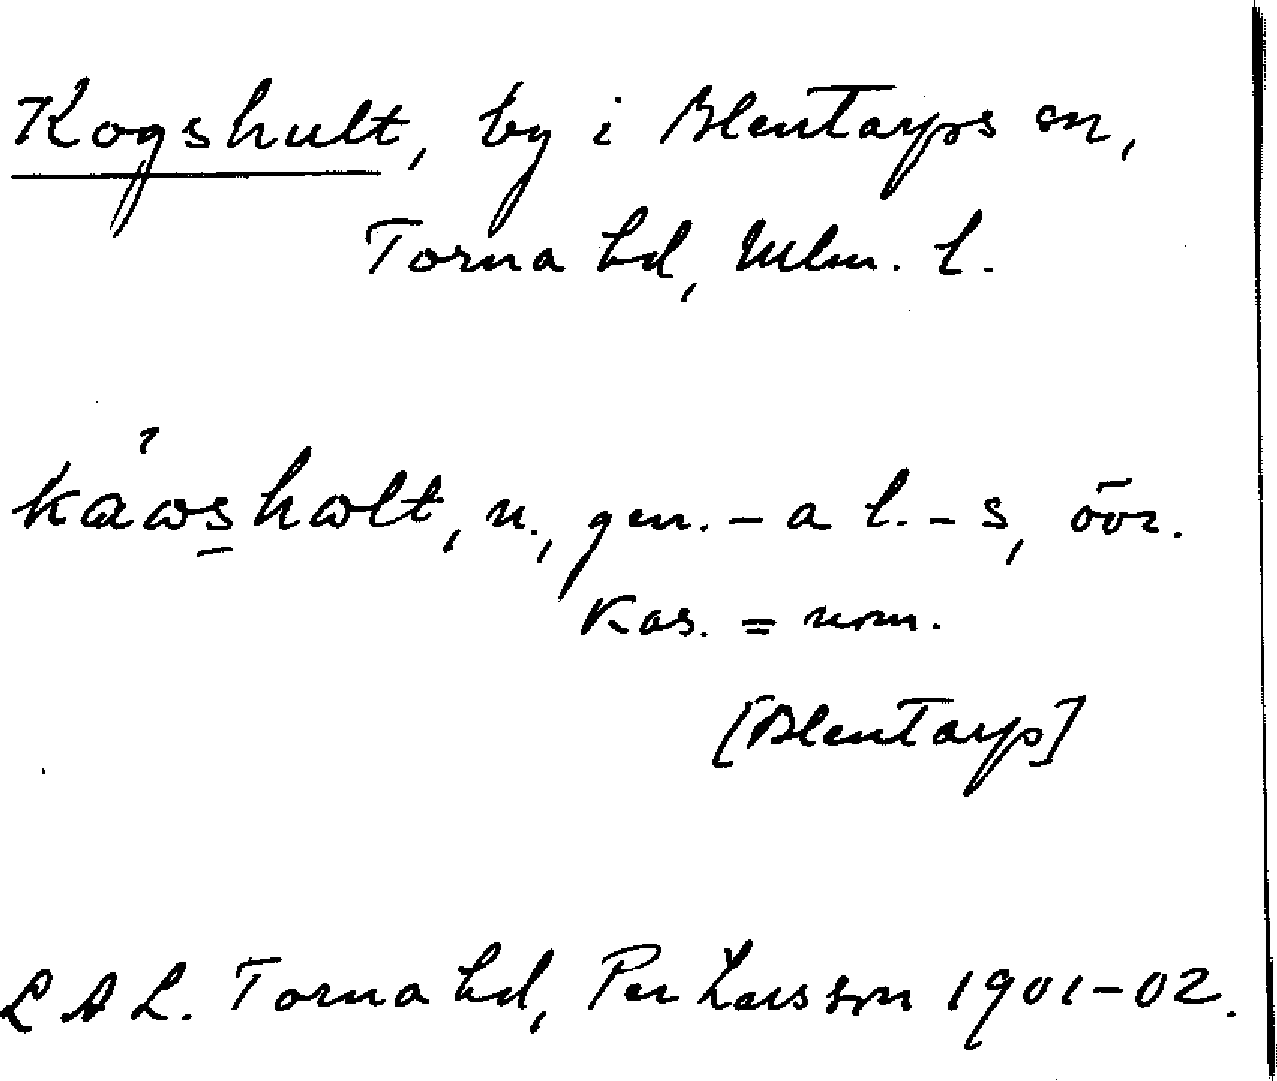 Kogshult, by i Blentarps sn,
Torna hd, Mlm. l.
káωshωlt, n., gen. - a l. - s, övr.
kas. = nom.
[Blentarp]
LAL. Torna hd, Per Larsson 1901-02.